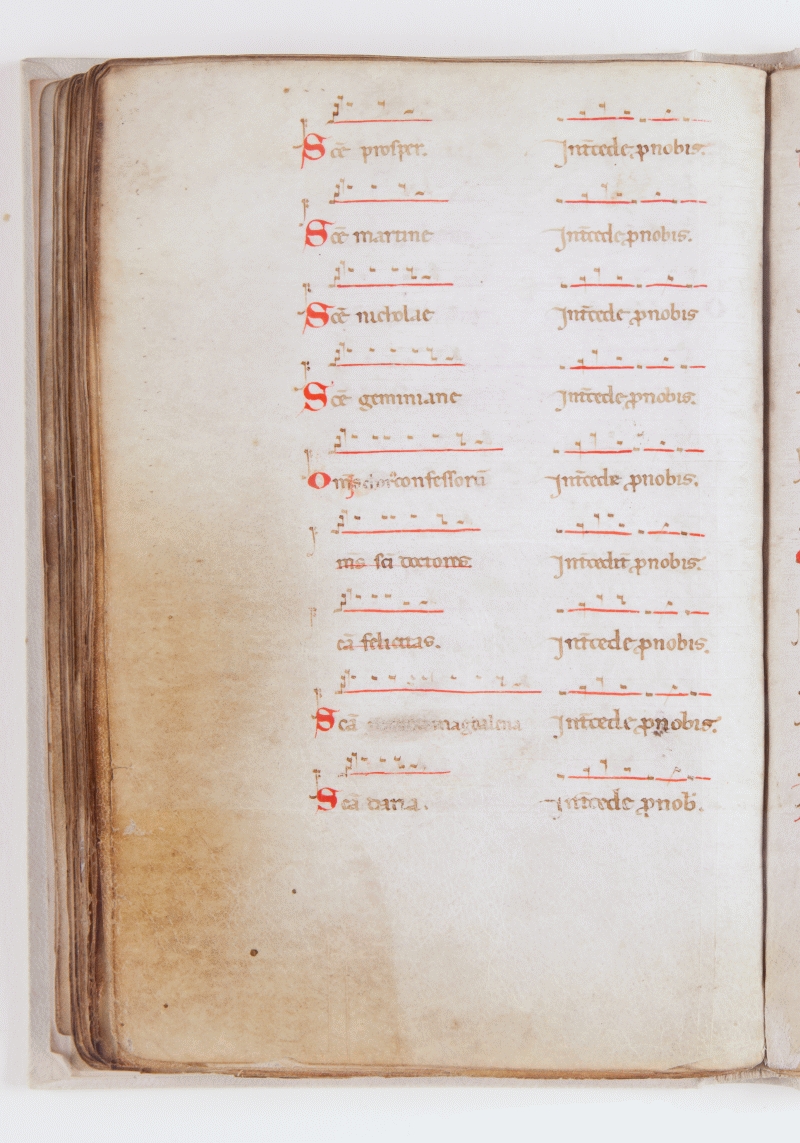 Scē prosper. Int̄cede p̱nobis.
Scē martine Int̄cede p̱nobis.
Scē nicholae Int̄cede p̱nobis
Scē geminiane Int̄cede p̱nobis.
confessorū Int̄cede p̱nobis.
sci doctores Int̄cedit p̱nobis.
cā felicitas. Int̄cede p̱nobis.
Scā magdalena Int̄cede p̱nobis.
Scā daria. Int̄cede p̱nob̄.